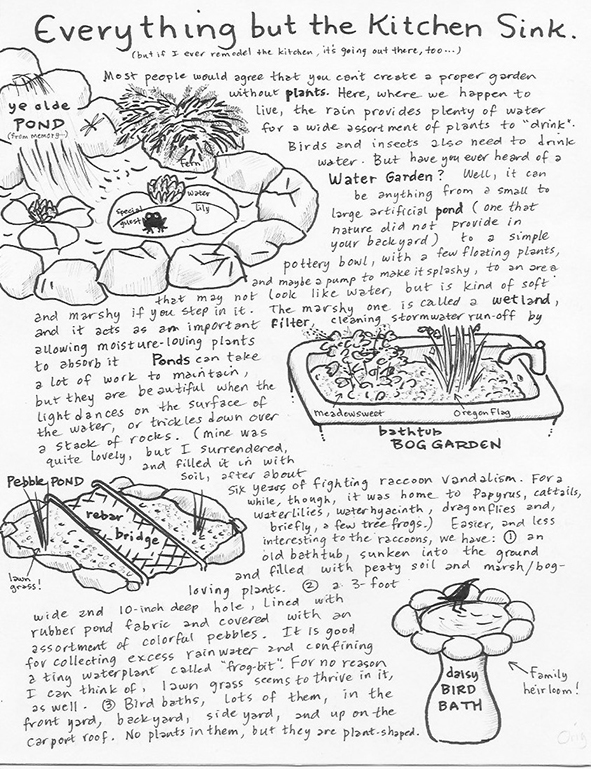 Everything but the Kitchen Sink.
(but if I ever remodel the kitchen, it's going out there, too...)
Most people would agree that you can't create a proper garden
without plants. Here, where we happen to
live, the rain provides plenty of water
for a wide assortment of plants to "drink".
Birds and insects also need to drink
water. But have you ever heard of a
Water Garden? Well, it can
be anything from a small to
large artificial pond (one that
nature did not provide in
your backyard) to a simple
pottery bowl, with a few floating plants,
and maybe a pump to make it splashy, to an area
that may not look like water, but is kind of soft
and marshy if you step in it. The marshy one is called a wetland,
and it acts as an important filter, cleaning stormwater run-off by
allowing moisture-loving plants
to absorb it Ponds can take
a lot of work to maintain,
but they are beautiful when the
light dances on the surface of
the water, or trickles down over
a stack of rocks. (mine was
quite lovely, but I surrendered,
and filled it in with
soil, after about
six years of fighting raccoon vandalism. For a
while, though, it was home to Papyrus, cattails,
waterlilies, waterhyacinth, dragonflies and,
briefly, a few tree frogs.) Easier, and less
interesting to the raccoons, we have: ① an
old bathtub, sunken into the ground
and filled with peaty soil and marsh/bog-
loving plants. ② a 3-foot
wide and 10-inch deep hole, lined with
rubber pond fabric and covered with an
assortment of colorful pebbles. It is good
for collecting excess rainwater and confining
a tiny waterplant called "frog-bit". For no reason
I can think of, lawn grass seems to thrive in it,
as well. ③ Bird baths, lots of them, in the
front yard, backyard, side yard, and up on the
carport roof. No plants in them, but they are plant-shaped.
ye olde
POND
(from memory—)
fern
water
lily
special
guest
meadowsweet
Oregon flag
bathtub
BOG GARDEN
Pebble POND
rebar
bridge
lawn
grass!
daisy
BIRD
BATH
Family
heirloom!
Orig